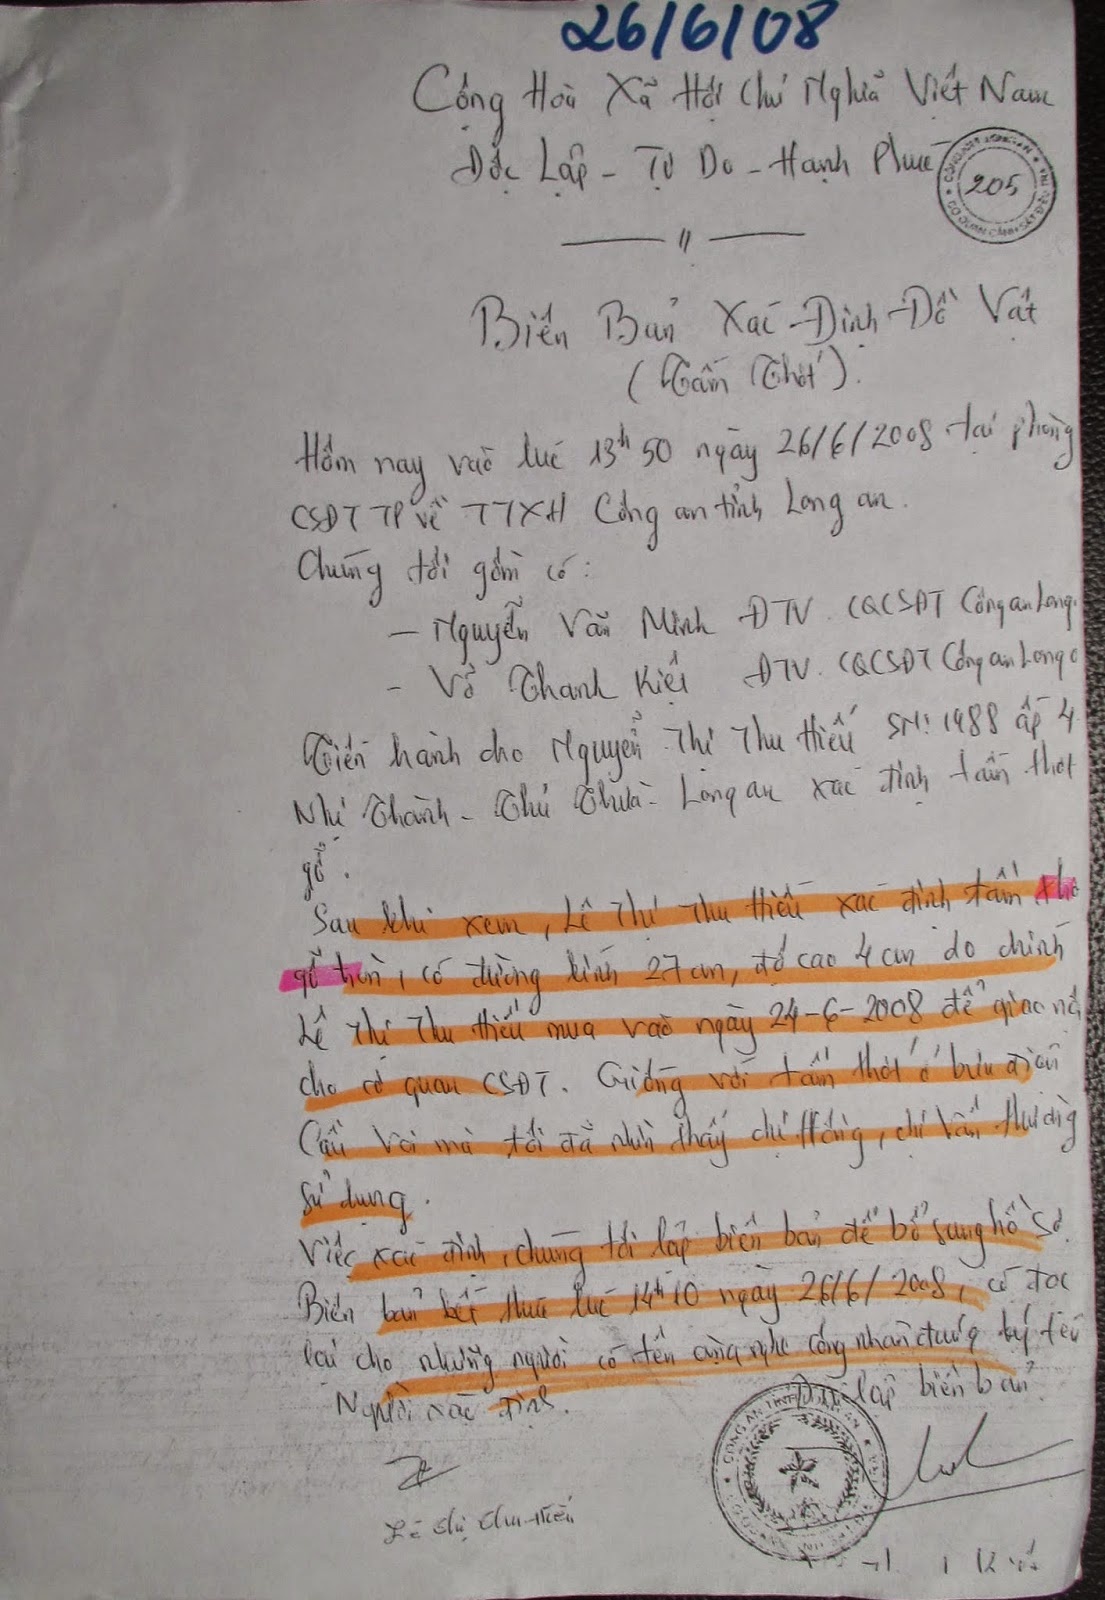 26/6/08
Cộng Hoà Xã Hội Chủ Nghĩa Việt Nam
Độc Lập - Tự Do - Hạnh Phúc
205
Biên Bản Xác Định Đồ Vật
(Tấm Thớt).
Hôm nay vào lúc 13h50 ngày 26/6/2008 tại phòng
CSĐT TP về TTXH Công an tỉnh Long an.
Chúng tôi gồm có:
- Nguyễn Văn Minh ĐTV. CQCSĐT Công an Long
- Võ Thanh Kiệt ĐTV. CQCSĐT Công an Long a
Tiến hành cho Nguyễn Thị Thu Hiếu SN: 1988 ấp 4
Nhị Thành - Thủ Thừa - Long an xác định tấm thớt
gỗ.
Sau khi xem, Lê Thị Thu Hiếu xác định tấm thớ
gỗ tròn, có đường kính 27cm, độ cao 4cm do chính
Lê Thị Thu Hiếu mua vào ngày 24-6-2008 để giao nộ
cho cơ quan CSĐT. Giống với tấm thớt ở bưu điện
Cầu Voi mà tôi đã nhìn thấy chị Hồng, chị Vân thường
sử dụng.
Việc xác định, chúng tôi lập biên bản để bổ sung hồ sơ.
Biên bản kết thúc lúc 14h10 ngày 26/6/2008, có đọc
lại cho những người có tên cùng nghe công nhận đúng ký tên
Người xác định. lập biên bản.
Lê Thị Thu Hiếu